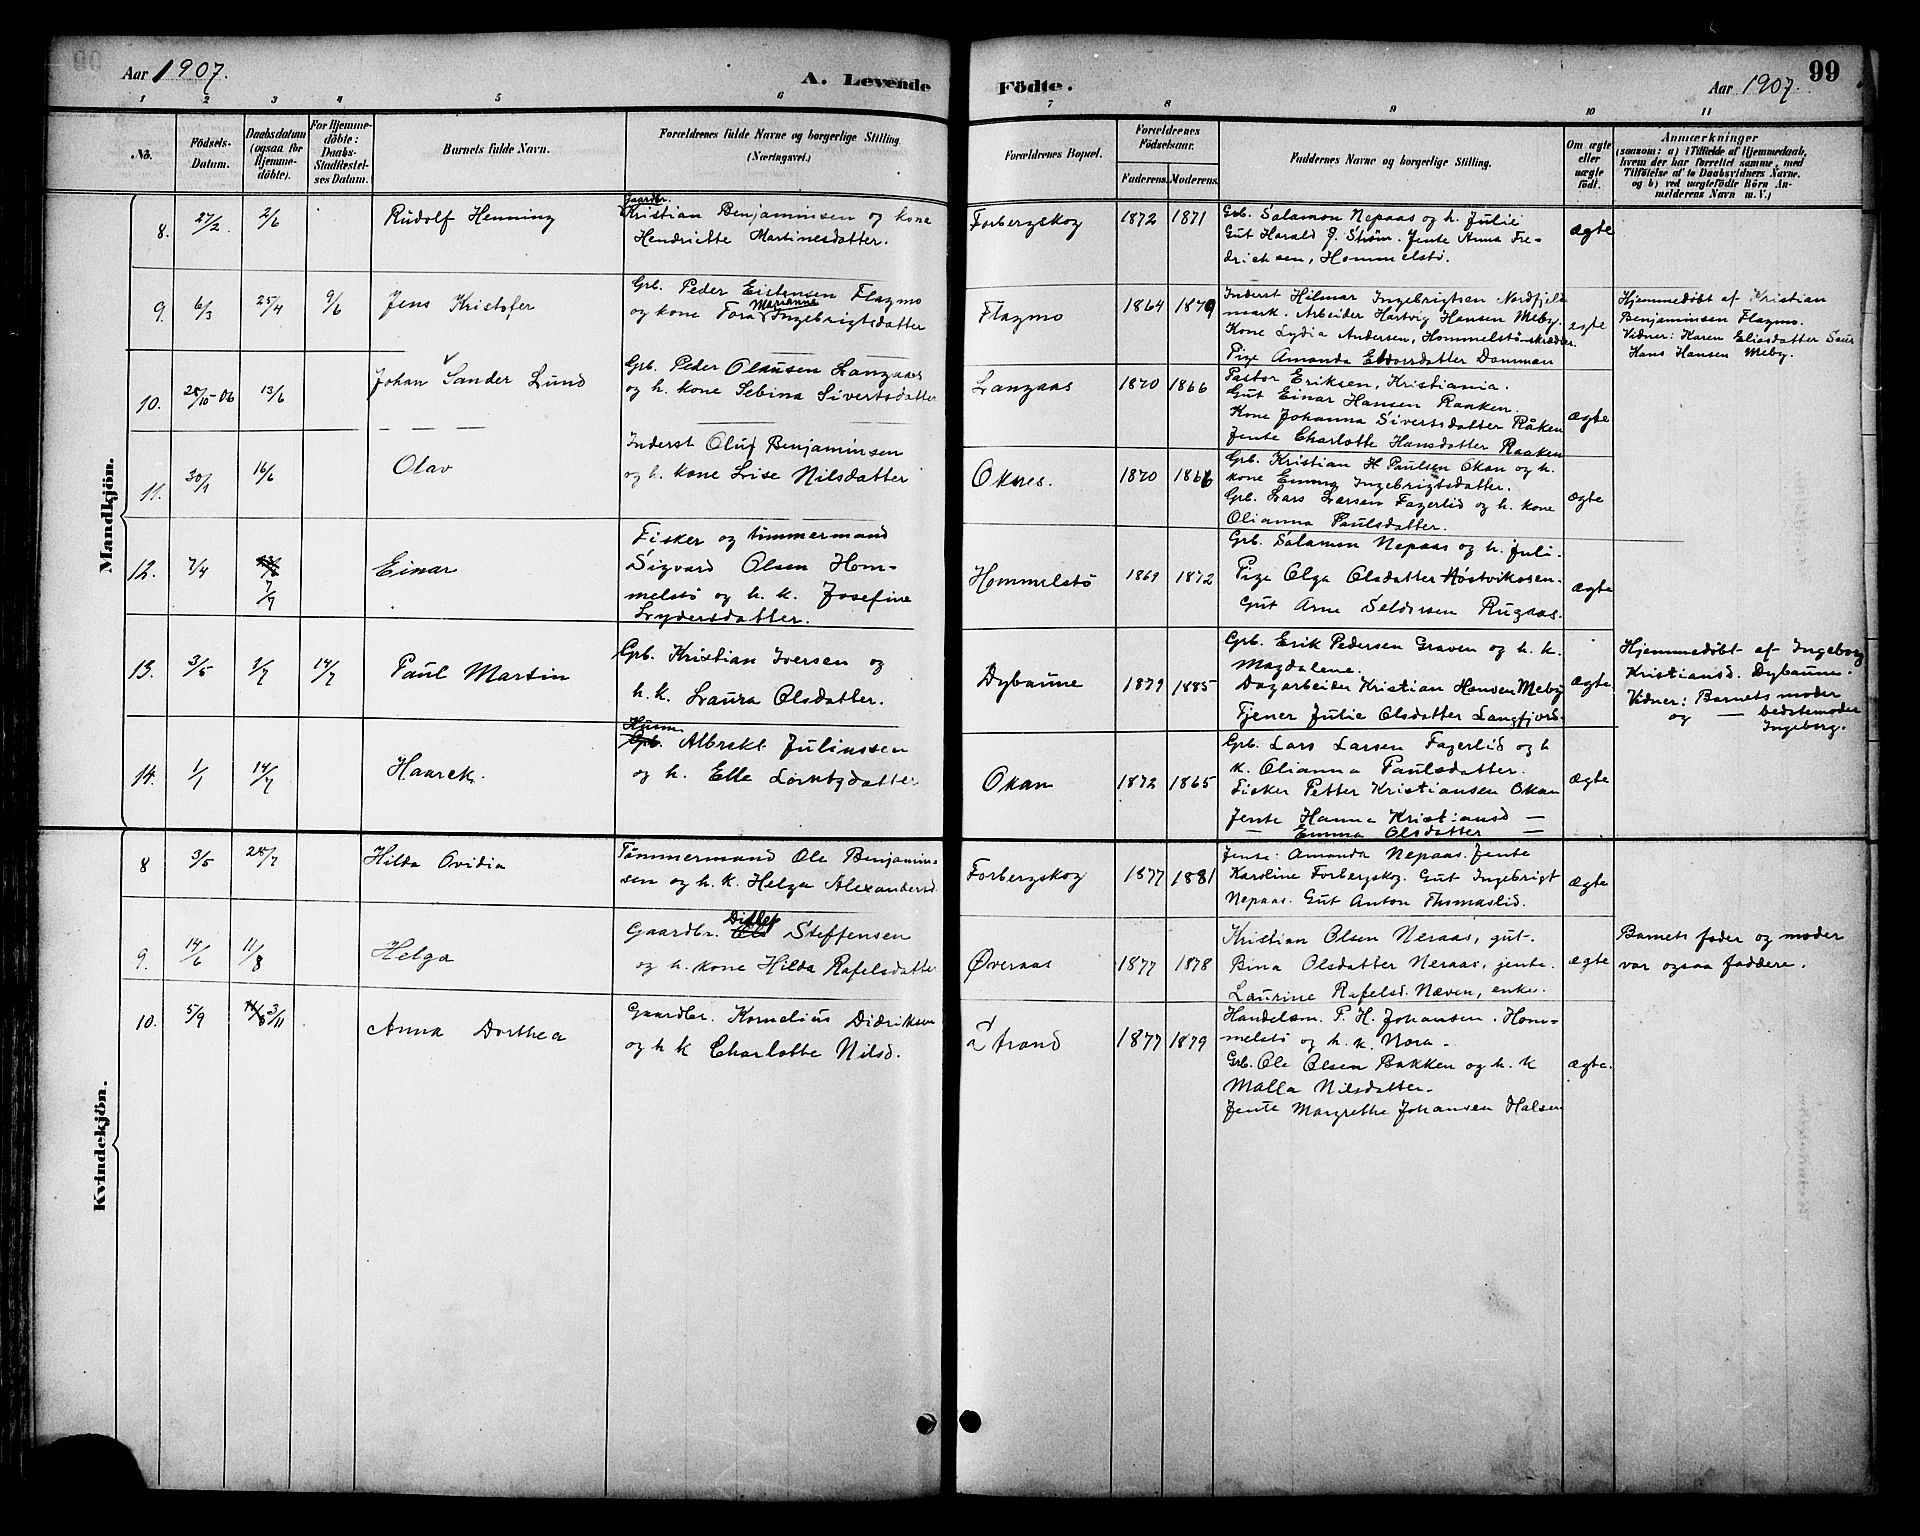 Aar 1907.
A. Levende
Födte.
Aar 1907.
99
1 2 3 4 5 6 7 8 9 10 11
No.
Födsels-
Datum.
Daabsdatum
(ogsaa for
Hjemme-
döbte).
For Hjemme-
döbte:
Daabs-
Stadfæstel-
ses Datum.
Barnets fulde Navn.
Forældrenes fulde Navne og borgerlige Stilling.
(Næringsvei.)
Forældrenes Bopæl.
Forældrenes
Födselsaar.
Faderens.
Moderens.
Faddernes Navne og borgerlige Stilling.
Om ægte
eller
uægte
født.
Anmærkninger
(saasom: a) i Tilfælde af Hjemmedaab,
hvem der har forrettet samme, med
Tilföielse af to Daabsvidners Navne,
og b) ved uægtefödte Börn An-
melderens Navn m. V.)
Mandkjön.
8. 27/2 2/6
Rudolf Henning
Gaardbr.
Kristian Benjaminsen og kone
Hendriette Martinesdatter.
Forbergskog
1872 1871
Grb. Salamon Nepaas og h. Julie
Gut Harald J. Strøm. Jente Anna Fre-
drichsen, Hommelstø.
ægte
9. 6/3 25/4 9/6
Jens Kristofer
Grb. Peder Eistensen Flagmo
Marianne
og kone Tora Ingebrigtsdatter
Flagmo
1864 1879
Inderst Hilmar Ingebrigtsen Nordfjeld
mark. Arbeider Hartvig Hansen Meby.
Kone Lydia Andersen, Hommelstø
Pige Amanda datter Domman
ægte
Hjemmedøbt af Kristian
Benjaminsen Flagmo.
Vidner: Karen Eliasdatter Saus
Hans Hansen Meby.
10. 28/10-06 13/6
Johan Sander Lund
Grb. Peder Olausen Langaas
og h. kone Sebina Sivertsdatter
Langaas
1870 1866
Pastor Eriksen, Kristiania.
Gut Einar Hansen Raaken.
Kone Johanna Sivertsdatter Råken
Jente Charlotte Hansdatter Raaken
ægte
11. 30/1 16/6
Olav
Inderst Oluf Benjaminsen
og h. kone Lise Nilsdatter
Oknes.
1870 1866
Grb. Kristian H Paulsen Okan og h.
kone Emma Ingebrigtsdatter.
Grb. Lars Larsen Fagerlid og h. kone
Olianna Paulsdatter.
ægte
12. 7/4
7/9
Einar
Fisker og tømmermand
Sigvard Olsen Hom-
melstø og h. k. Josefine
Lydersdatter.
Hommelstø
1869 1872
Grb. Salamon Nepaas og h. Juli-
Pige Olga Olsdatter Høstvikosen-
Gut Arne Seldersen Rugaas.
ægte
13. 3/5 1/7 14/7
Paul Martin
Grb. Kristian Iversen og
h.k. Laura Olsdatter.
Dybaune
1879 1885
Grb. Erik Pedersen Graven og h. k.
Magdalene.
Dagarbeider Kristian Hansen Meby
Tjener Julie Olsdatter Langfjord
ægte
Hjemmedøbt af Ingeborg
Kristiansd. Dybaune.
Vidner: Barnets moder
og — bedstemoder
Ingeborg.
14. 1/1 14/7
Haarek.
Husm.
Grb. Albrekt Julinssen
og h. Elle Lorntzdatter
Okan
1872 1865
Grb. Lars Larsen Fagerlid og h
k. Olianna Paulsdatter.
Fisker Petter Kristiansen Okan
Jente Hanna Kristiansd —
— Emma Olsdatter —
ægte
Kvindekjön.
8 3/5 28/7
Hilda Ovidia
Tømmermand Ole Benjamin-
sen og h. k. Helga Alexandersd.
Forbergskog
1877 1881
Jente: Amanda Nepaas. Jente
Karoline Forbergskog. Gut Ingebrigt
Nepaas. Gut Anton Thomaslid.
ægte
9. 14/6 11/8
Helga
Ditlef
Gaardbr. Ole Steffensen
og h. kone Hilda Rafelsdatter
Øveraas
1877 1878
Kristian Olsen Neraas, gut.
Bina Olsdatter Neraas, jente.
Laurine Rafelsd. Næven, enke.
ægte
Barnets fader og moder
var ogsaa faddere.
10. 5/9 3/11
Anna Dorthea
Gaardbr. Kornelius Didriksen
og h k Charlotte Nilsd.
Strand
1877 1879
Handelsm. P. H. Johansen. Hom-
melstø og h. k. Nora-
Grb. Ole Olsen Bakken og h. k
Malla Nilsdatter-
Jente Margrethe Johansen Halsen
ægte.